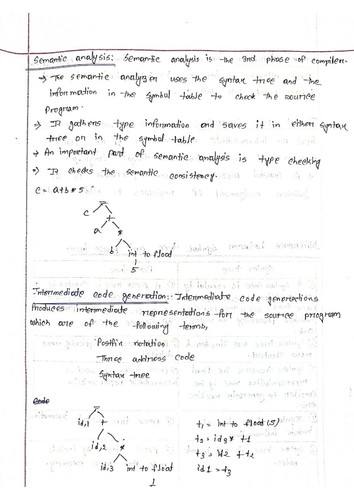 Semantic analysis: Semantic analysis is the 3rd phase of compiler.
→ The semantic analyzer uses the syntax tree and the
information in the symbol table to check the source
program.
→ It gathers type information and saves it in either syntax
tree or in the symbol table
→ An important part of semantic analysis is type checking
→ It checks the semantic consistency.
c = a+b*5
=
c +
a *
b int to float
5
Intermediate code generation: Intermediate code generations
Produces intermediate representations for the source program
which are of the following terms,
Postfix notation
Three address code
Syntax tree
Code
=
id,1 + t1 = int to float (5)
id,2 * t2 = id3 * t1
id,3 int to float t3 = id2 + t2
id1 = t3